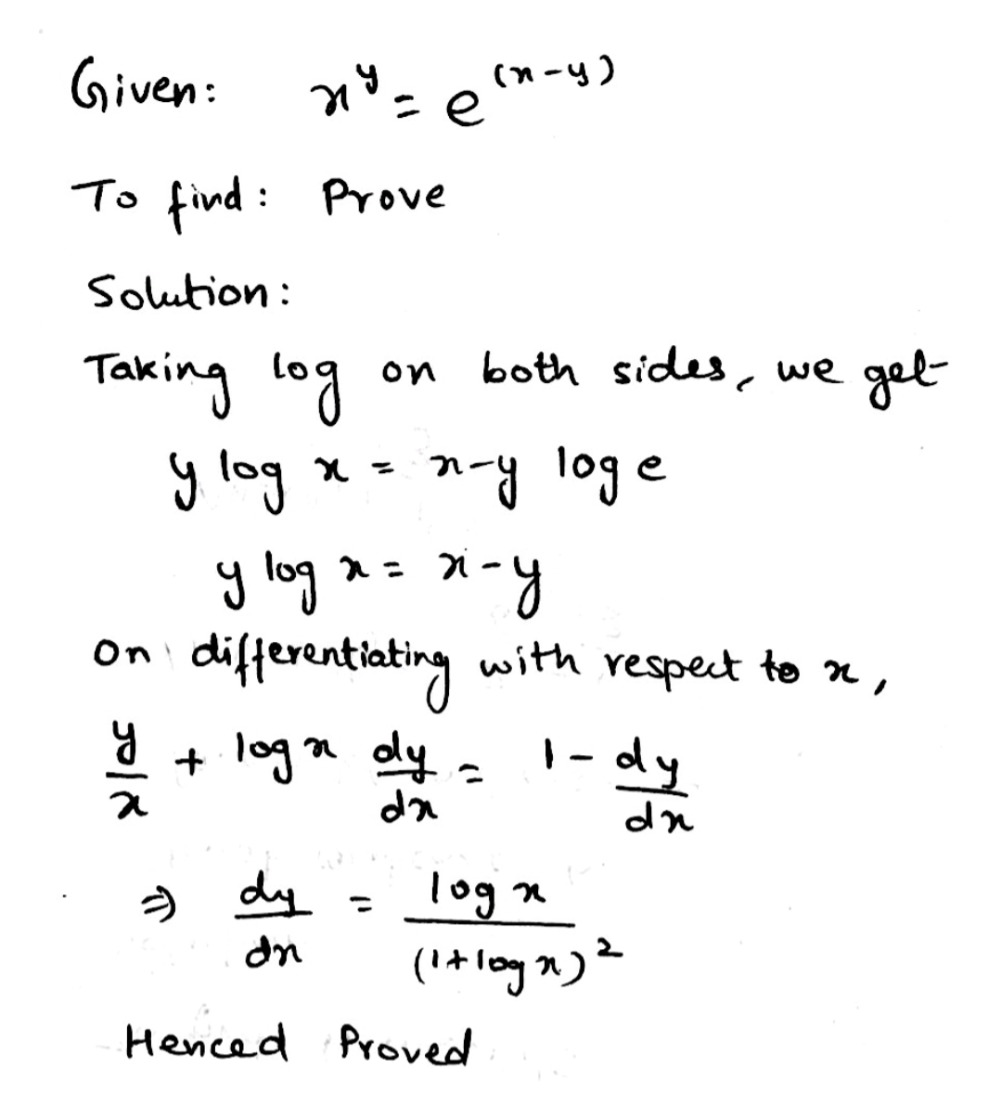 Given: x^y = e^(x-y)
To find: Prove
Solution:
Taking log on both sides, we get
y log x = x-y log e
y log x = x-y
On differentiating with respect to x,
y/x + log x dy/dx = 1 - dy/dx
⇒ dy/dx = log x/(1+log x)^2
Henced Proved